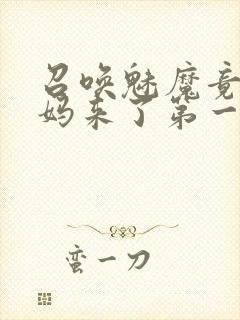 召唤魅魔竟
妈来了第一
蛮一刀